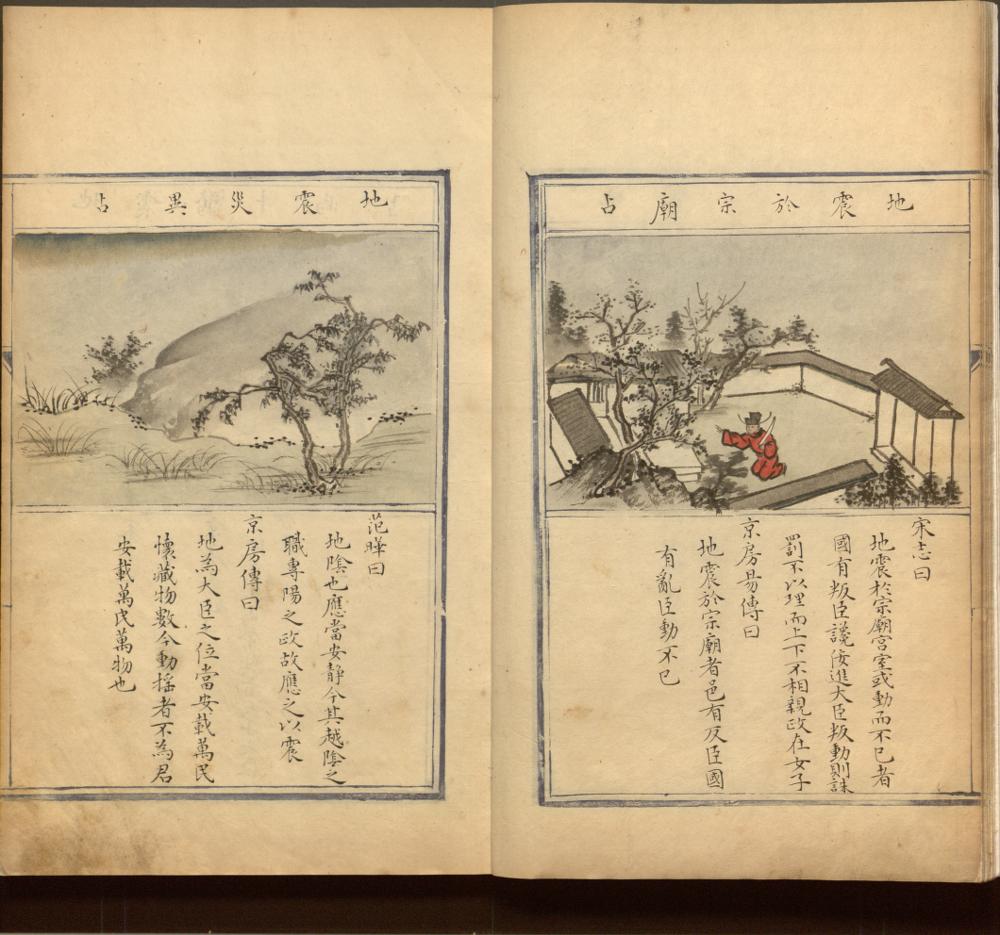 地震於宗廟占
宋志曰
地震於宗廟宫室或動而不已者
國有叛臣讒佞進大臣叛動則誅
罰不以理而上下不相親政在女子
京房易傳曰
地震於宗廟者邑有反臣國
有亂臣動不已
地震災異占
范曄曰
地陰也應當安靜今其越陰之
職專陽之政故應之以震
京房傳曰
地為大臣之位當安載萬民
懷藏物數今動搖者不為君
安載萬民萬物也